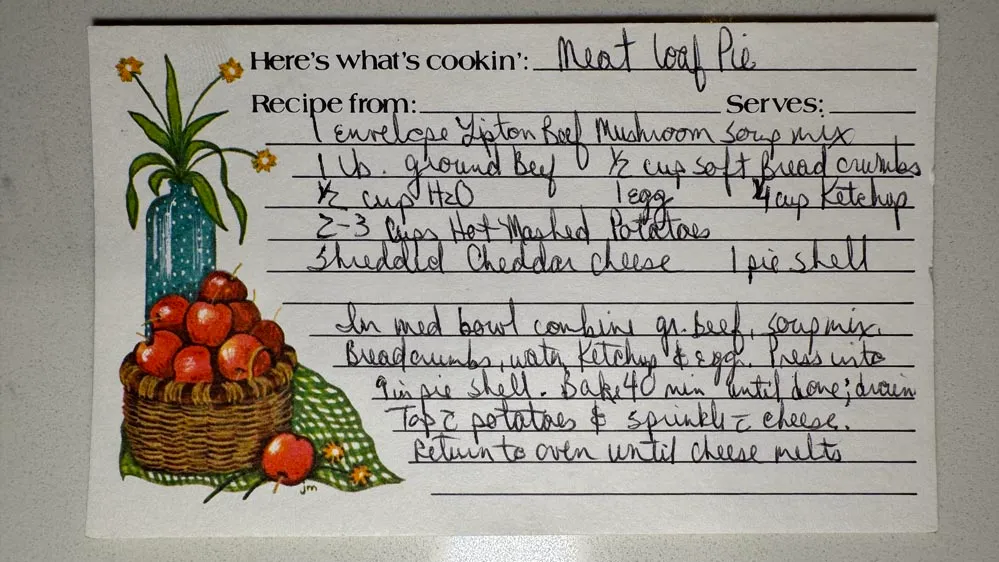 Here's what's cookin': Meat Loaf Pie
Recipe from: Serves:
1 Envelope Lipton Beef Mushroom Soup mix
1 lb. ground Beef 1/2 cup soft Bread crumbs
1/2 cup H2O 1 egg 1/4 cup Ketchup
2-3 Cups Hot Mashed Potatoes
Shredded Cheddar cheese 1 pie shell
In med bowl combine gr. beef, soup mix,
Breadcrumbs, watr, Ketchup & egg. Press into
9in pie shell. Bake 40 min until done; drain
Top c̄ potatoes & sprinkle c̄ cheese.
Return to oven until cheese melts
jm